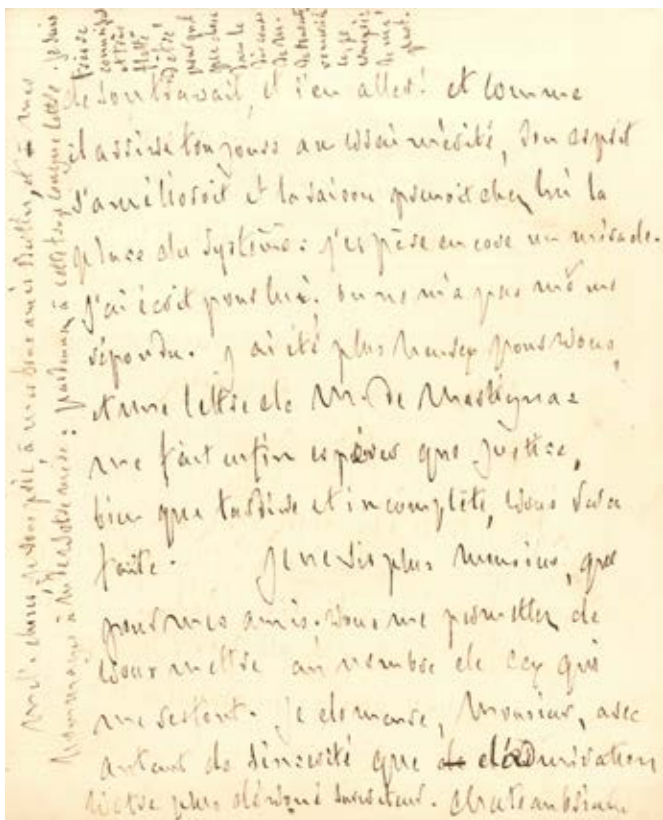 de son travail, et s'en aller! et comme
il arrive toujours au vrai mérite, son esprit
s'amélioroit et la raison prenoit chez lui la
place du système: j'espère encore un miracle.
j'ai écrit pour lui. on ne m'a pas même
répondu. j'ai été plus heureux pour vous,
et une lettre de M. de Martignac
me fait enfin espérer que justice,
bien que tardive et incomplète, vous sera
faite. Je ne vis plus Monsieur, que
pour mes amis. vous me permettez de
vous mettre au nombre de ceux qui
me restent. je demeure, Monsieur, avec
autant de sincérité que d'admiration
votre plus dévoué serviteur. Chateaubriand
Mille choses, je vous prie, à mes bons amis et à mes
hommages à Mde votre mère: pardonnez à cette trop longue lettre. je suis
et très
flatté
d'être
pour quel
que chose
dans le
discours
de M.